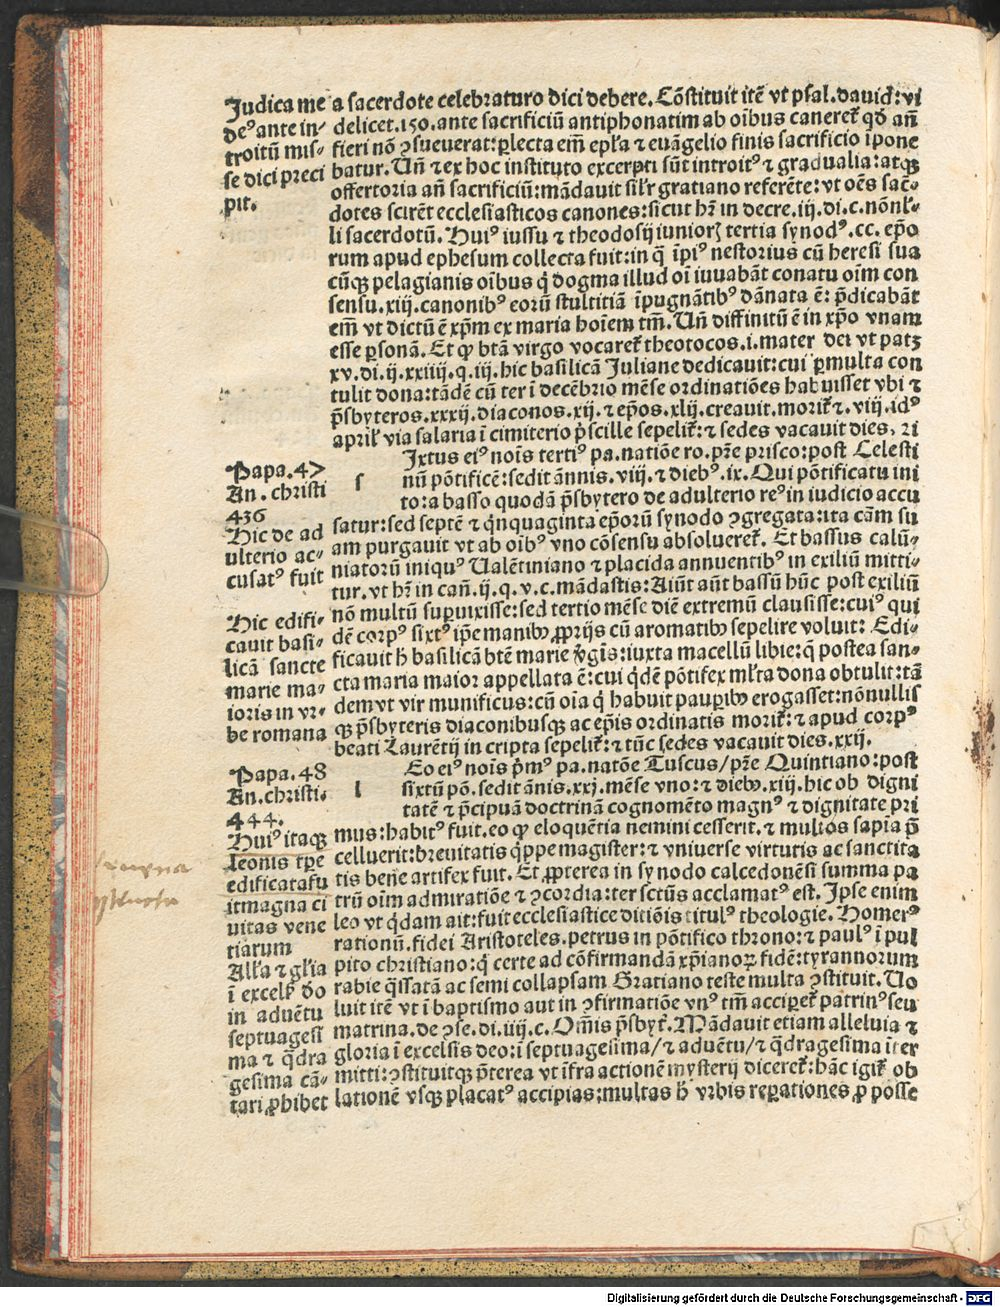 Judica me
de⁹ ante in⸗
troitū mis⸗
se dici preci
pit.
a sacerdote celebraturo dici debere. Cōstituit itē vt psal. david: vi
delicet .150. ante sacrificiū antiphonatim ab oībus caneret̄ qd̄ an̄
fieri nō ꝯsueuerat: plecta em̄ epl̄a ⁊ euāgelio finis sacrificio īpone
batur. Un̄ ⁊ ex hoc instituto excerpti sūt introit⁹ ⁊ gradualia: atqꝫ
offertoria an̄ sacrificiū: mādauit sil̄r gratiano referēte: vt oēs sacē⸗
dotes scirēt ecclesiasticos canones: sicut hr̄ in decre. iij. di. c. nōnl̄⸗
li sacerdotū. Hui⁹ iussu ⁊ theodosij iunioꝝ tertia synod⁹ .cc. ep̄o
rum apud ephesum collecta fuit: in q̄ īpi⁹ nestorius cū heresi sua
cūqꝫ pelagianis oībus q̇ dogma illud oī iuuabāt conatu oīm con
sensu. xiij. canonib⁹ eorū stultitiā īpugnātib⁹ dānata ē: p̄dicabāt
em̄ vt dictū ē xp̄m ex maria hoīem tm̄. Un̄ diffinitū ē in xp̄o vnam
esse ꝑsonā. Et ꝙ btā virgo vocaret̄ theotocos .i. mater dei vt patꝫ
xv. di. ij. xxiiij. q. iij. hic basilicā Juliane dedicauit: cui ꝑmulta con
tulit dona: tādē cū ter ī decēbrio mēse ordinatiōes habuisset vbi ⁊
p̄sbyteros .xxxij. diaconos .xij. ⁊ ep̄os .xlij. creauit. morit̄ ⁊ . viij. id⁹
april̄ via salaria ī cimiterio p̄scille sepelit̄: ⁊ sedes vacauit dies, ꝛi
Papa. 47
An. christi
436
Hic de ad
ulterio ac⸗
cusat⁹ fuit
Ixtus ei⁹ nois terti⁹ pa. natiōe ro. pr̄e prisco: post Celesti
s nū pōtificē: sedit ānnis .viij. ⁊ dieb⁹ .ix. Qui pōtificatu ini
to: a basso quodā p̄sbytero de adulterio re⁹ in iudicio accu
satur: sed septē ⁊ q̇nquaginta ep̄orū synodo ꝯgregata: ita cām su
am purgauit vt ab oīb⁹ vno cōsensu absolueret̄. Et bassus calū⸗
niatorū iniqu⁹ Ualētiniano ⁊ placida annuentib⁹ in exiliū mitti⸗
tur. vt hr̄ in can̄. ij. q. v. c. mādastis: Aiūt aūt bassū hūc post exiliū
nō multū supuixisse: sed tertio mēse diē extremū clausisse: cui⁹ qui
dē corp⁹ sixt⁹ ip̄e manibꝫ ꝓprijs cū aromatibꝫ sepelire voluit: Edi⸗
ficauit h̄ basilicā btē marie v̄gīs: iuxta macellū libie: q̄ postea san⸗
cta maria maior appellata ē: cui q̇dē pōtifex ml̄ta dona obtulit: tā
dem vt vir munificus: cū oīa q̄ habuit pauꝑibꝫ erogasset: nōnullis
qꝫ p̄sbyteris diaconibusqꝫ ac ep̄is ordinatis morit̄: ⁊ apud corp⁹
beati Laurētij in cripta sepelit̄: ⁊ tūc sedes vacauit dies. xxij.
Hic edifi⸗
cauit basi⸗
licā sancte
marie ma⸗
ioris in vr⸗
be romana
Papa. 48
An. christi.
444.
Hui⁹ itaqꝫ
leonis tp̄e
edificata fu
it magna ci
uitas vene
tiarum
All̄a ⁊ gl̄ia
ī excels̄ do
in aduētu
septuagesi
ma ⁊ q̄dra
gesima cā⸗
tari ꝓhibet
Eo ei⁹ nois p̄m⁹ pa. natōe Tuscus/ pr̄e Quintiano: post
l sixtū pō. sedit ānis .xxj. mēse vno: ⁊ diebꝫ .xiij. hic ob digni
tatē ⁊ p̄cipuā doctrinā cognomēto magn⁹ ⁊ dignitate pri
mus: habit⁹ fuit. eo ꝙ eloquētia nemini cesserit. ⁊ multos sapia p̄
celluerit: breuitatis q̇ppe magister: ⁊ vniuerse virtutis ac sanctita
tis bene artifex fuit. Et ꝓpterea in synodo calcedonēsi summa pa
trū oīm admiratiōe ⁊ ꝯcordia: ter sctūs acclamat⁹ est. Ipse enim
leo vt q̇dam ait: fuit ecclesiastice ditiōis titul⁹ theologie. Homer⁹
rationū. fidei Aristoteles. petrus in pōtifico throno: ⁊ paul⁹ ī pul
pito christiano: q̇ certe ad cōfirmandā xp̄ianoꝝ fidē: tyrannorum
rabie q̄ssatā ac semi collapsam Gratiano teste multa ꝯstituit. Uo
luit itē vt ī baptismo aut in ꝯfirmatiōe vn⁹ tm̄ acciꝑet̄ patrin⁹ seu
matrina. de ꝯse. di. iiij. c. Om̄is p̄sbyt̄. Mādauit etiam alleluia ⁊
gloria ī excelsis deo: ī septuagesima/ ⁊ aduētu/ ⁊ q̄dragesima īter
mitti: ꝯstituitqꝫ p̄terea vt īfra actionē mysterij diceret̄: hāc igit̄ ob
lationē vsqꝫ placat⁹ accipias: multas h̄ vrbis reꝑationes ꝓ posse
Digitalisierung gefördert durch die Deutsche Forschungsgemeinschaft - DFG